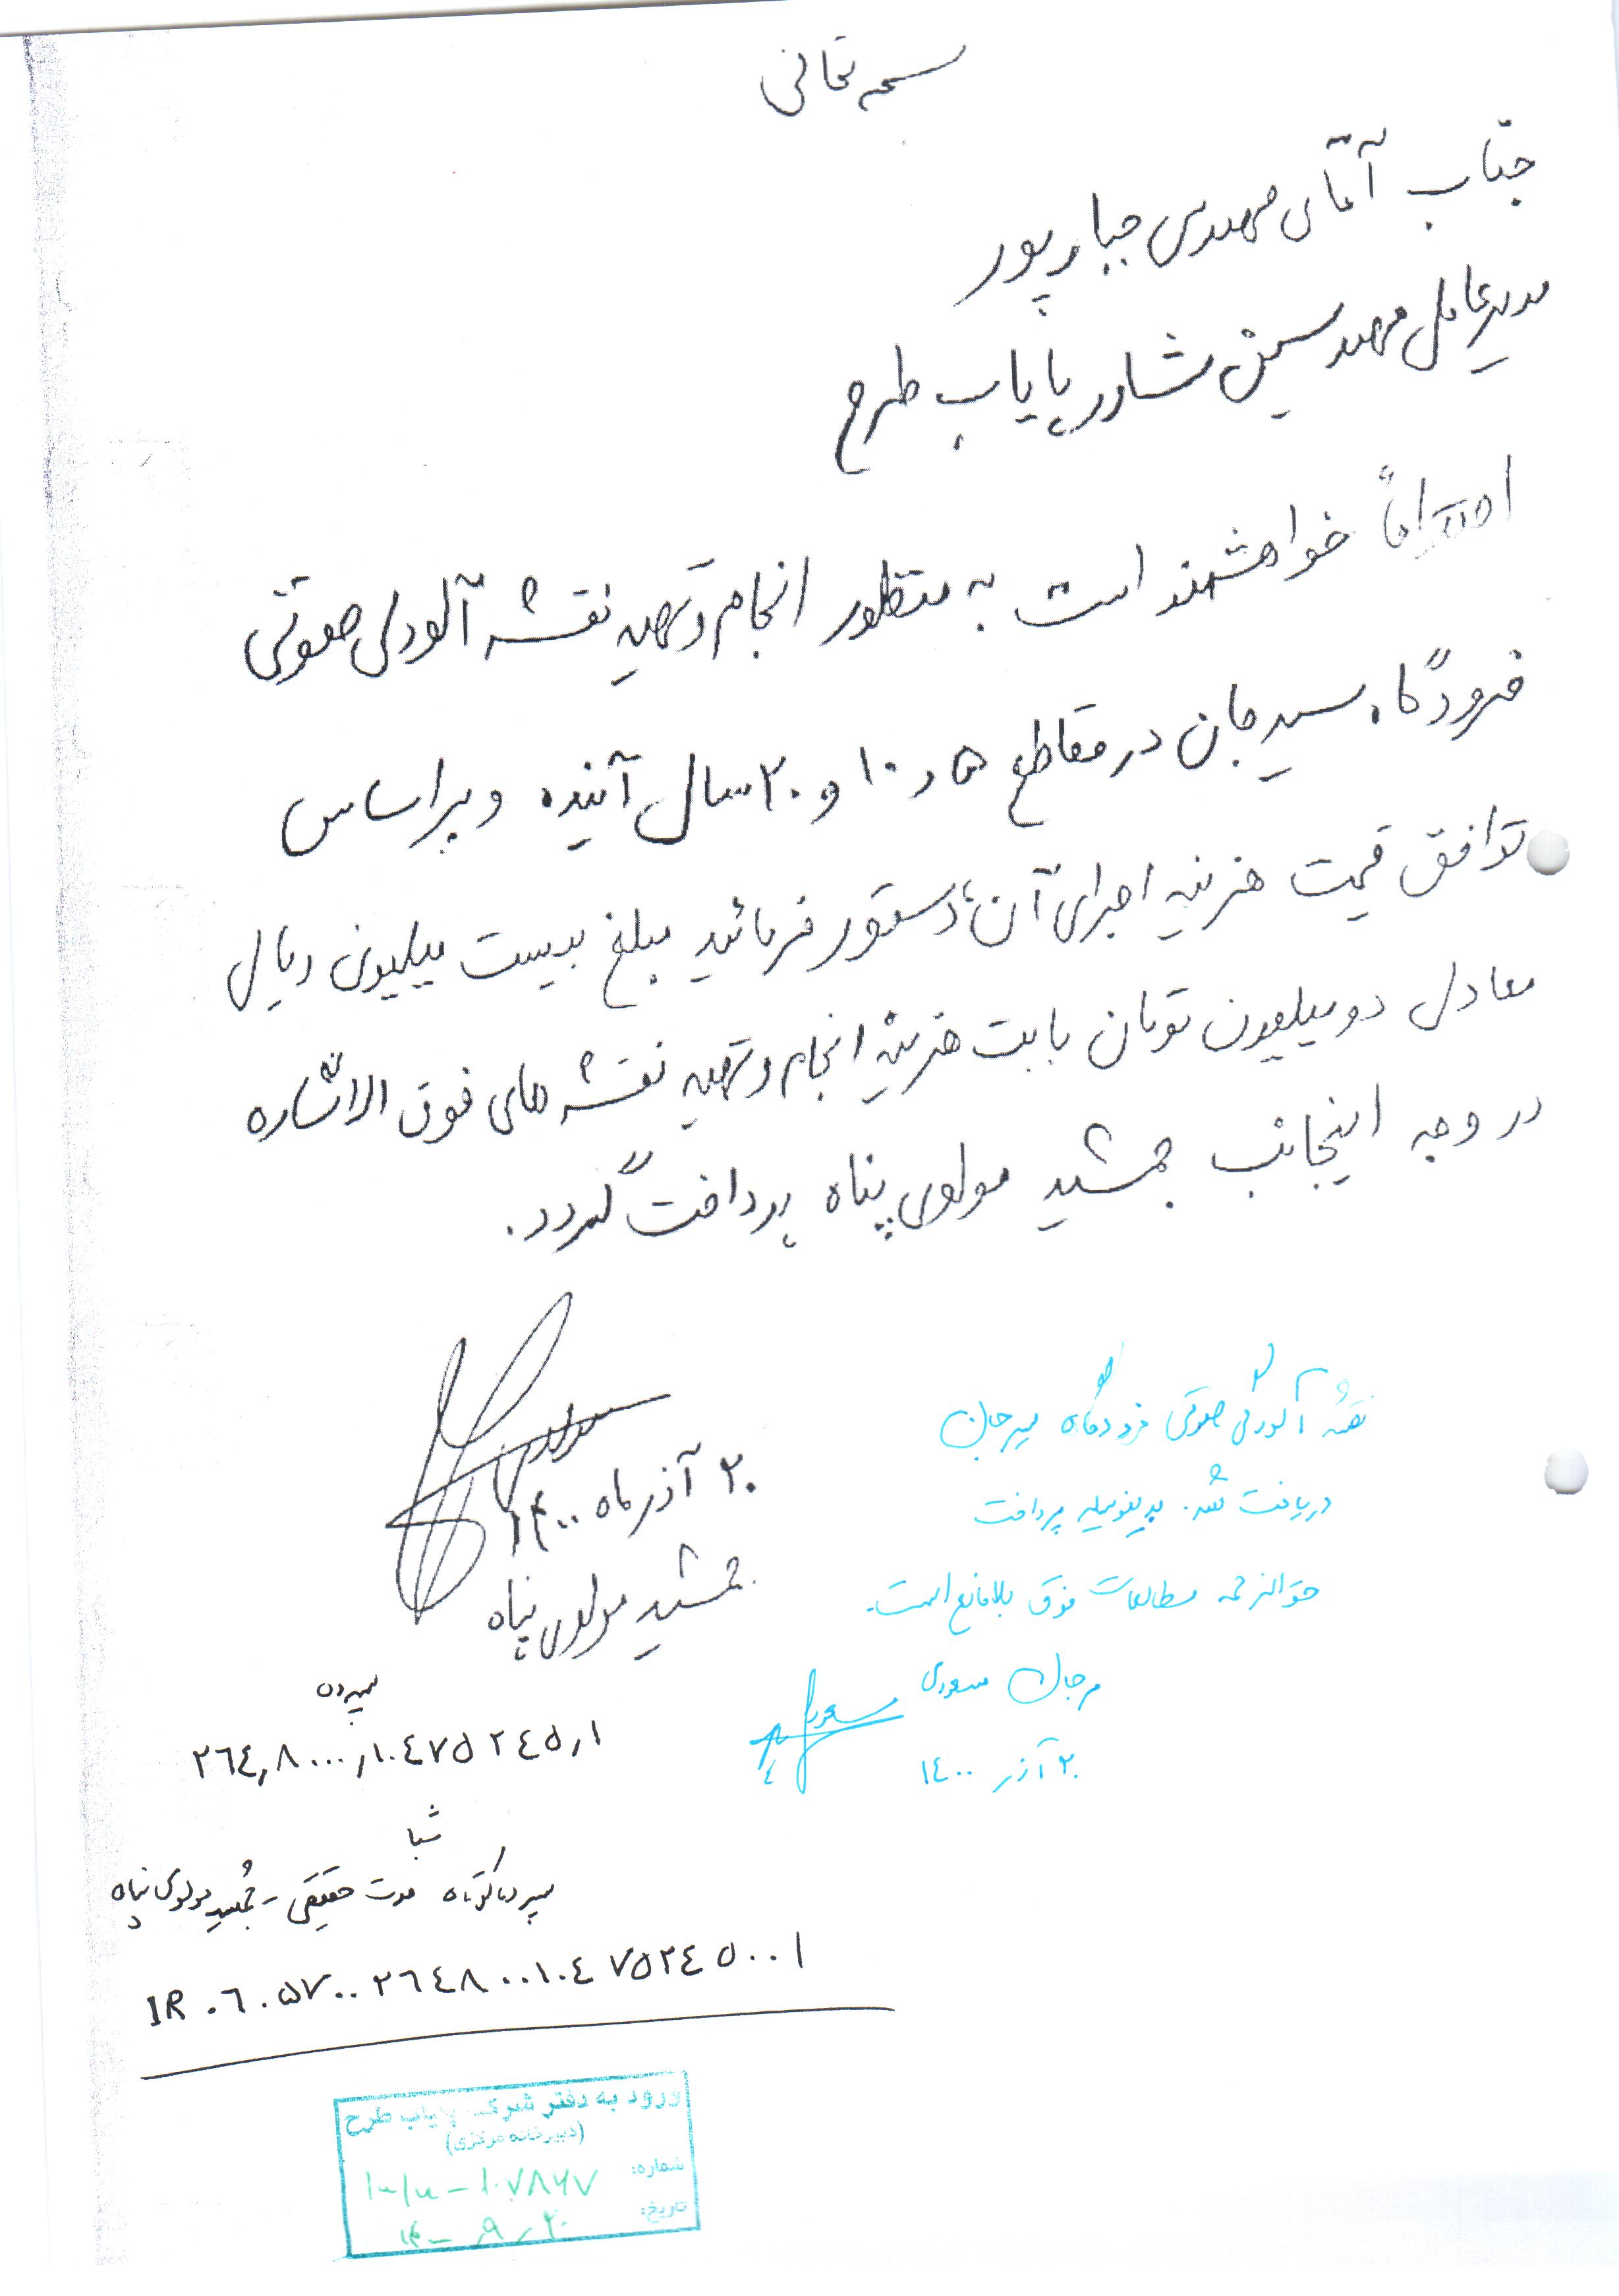 بسمه تعالی
جناب آقای مهندس جبارپور
مدیرعامل مهندسین مشاور پایاب طرح
احتراماً خواهشمند است به منظور انجام و تهیه نقشه آلودگی صوتی
فرودگاه سیرجان در مقاطع ۵ و ۱۰ و ۲۰ سال آینده و براساس
توافق قیمت هزینه اجرای آن، دستور فرمائید مبلغ بیست میلیون ریال
معادل دو میلیون تومان بابت هزینه انجام و تهیه نقشه های فوق الاشاره
در وجه اینجانب جمشید مولوی پناه پرداخت گردد.
۲۰ آذر ماه ۱۴۰۰
جمشید مولوی پناه
نقشه آلودگی صوتی فرودگاه سیرجان
دریافت شد. بدینوسیله پرداخت
حق الزحمه مطالعات فوق بلامانع است.
مرجان مسعودی
۲۰ آذر ۱۴۰۰
سپرده
۲٦٤,۸۰۰۰,۱۰٤۷۵۲٤۵,۱
شبا
سپرده کوتاه مدت حقیقی - جمشید مولوی پناه
IR ۰٦۰۵۷۰۰۲٦٤۸۰۰۱۰٤۷۵۲٤۵۰۰۱
ورود به دفتر شرکت پایاب طرح
(دبیرخانه مرکزی)
شماره: ۱۰۷۸۶۷
تاریخ: